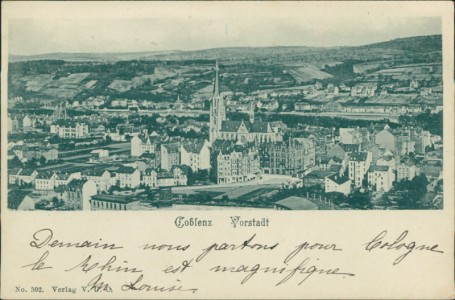 Coblenz Vorstadt
Demain nous partons pour Cologne
le Rhin est magnifique.
Louise.
No. 302. Verlag V.